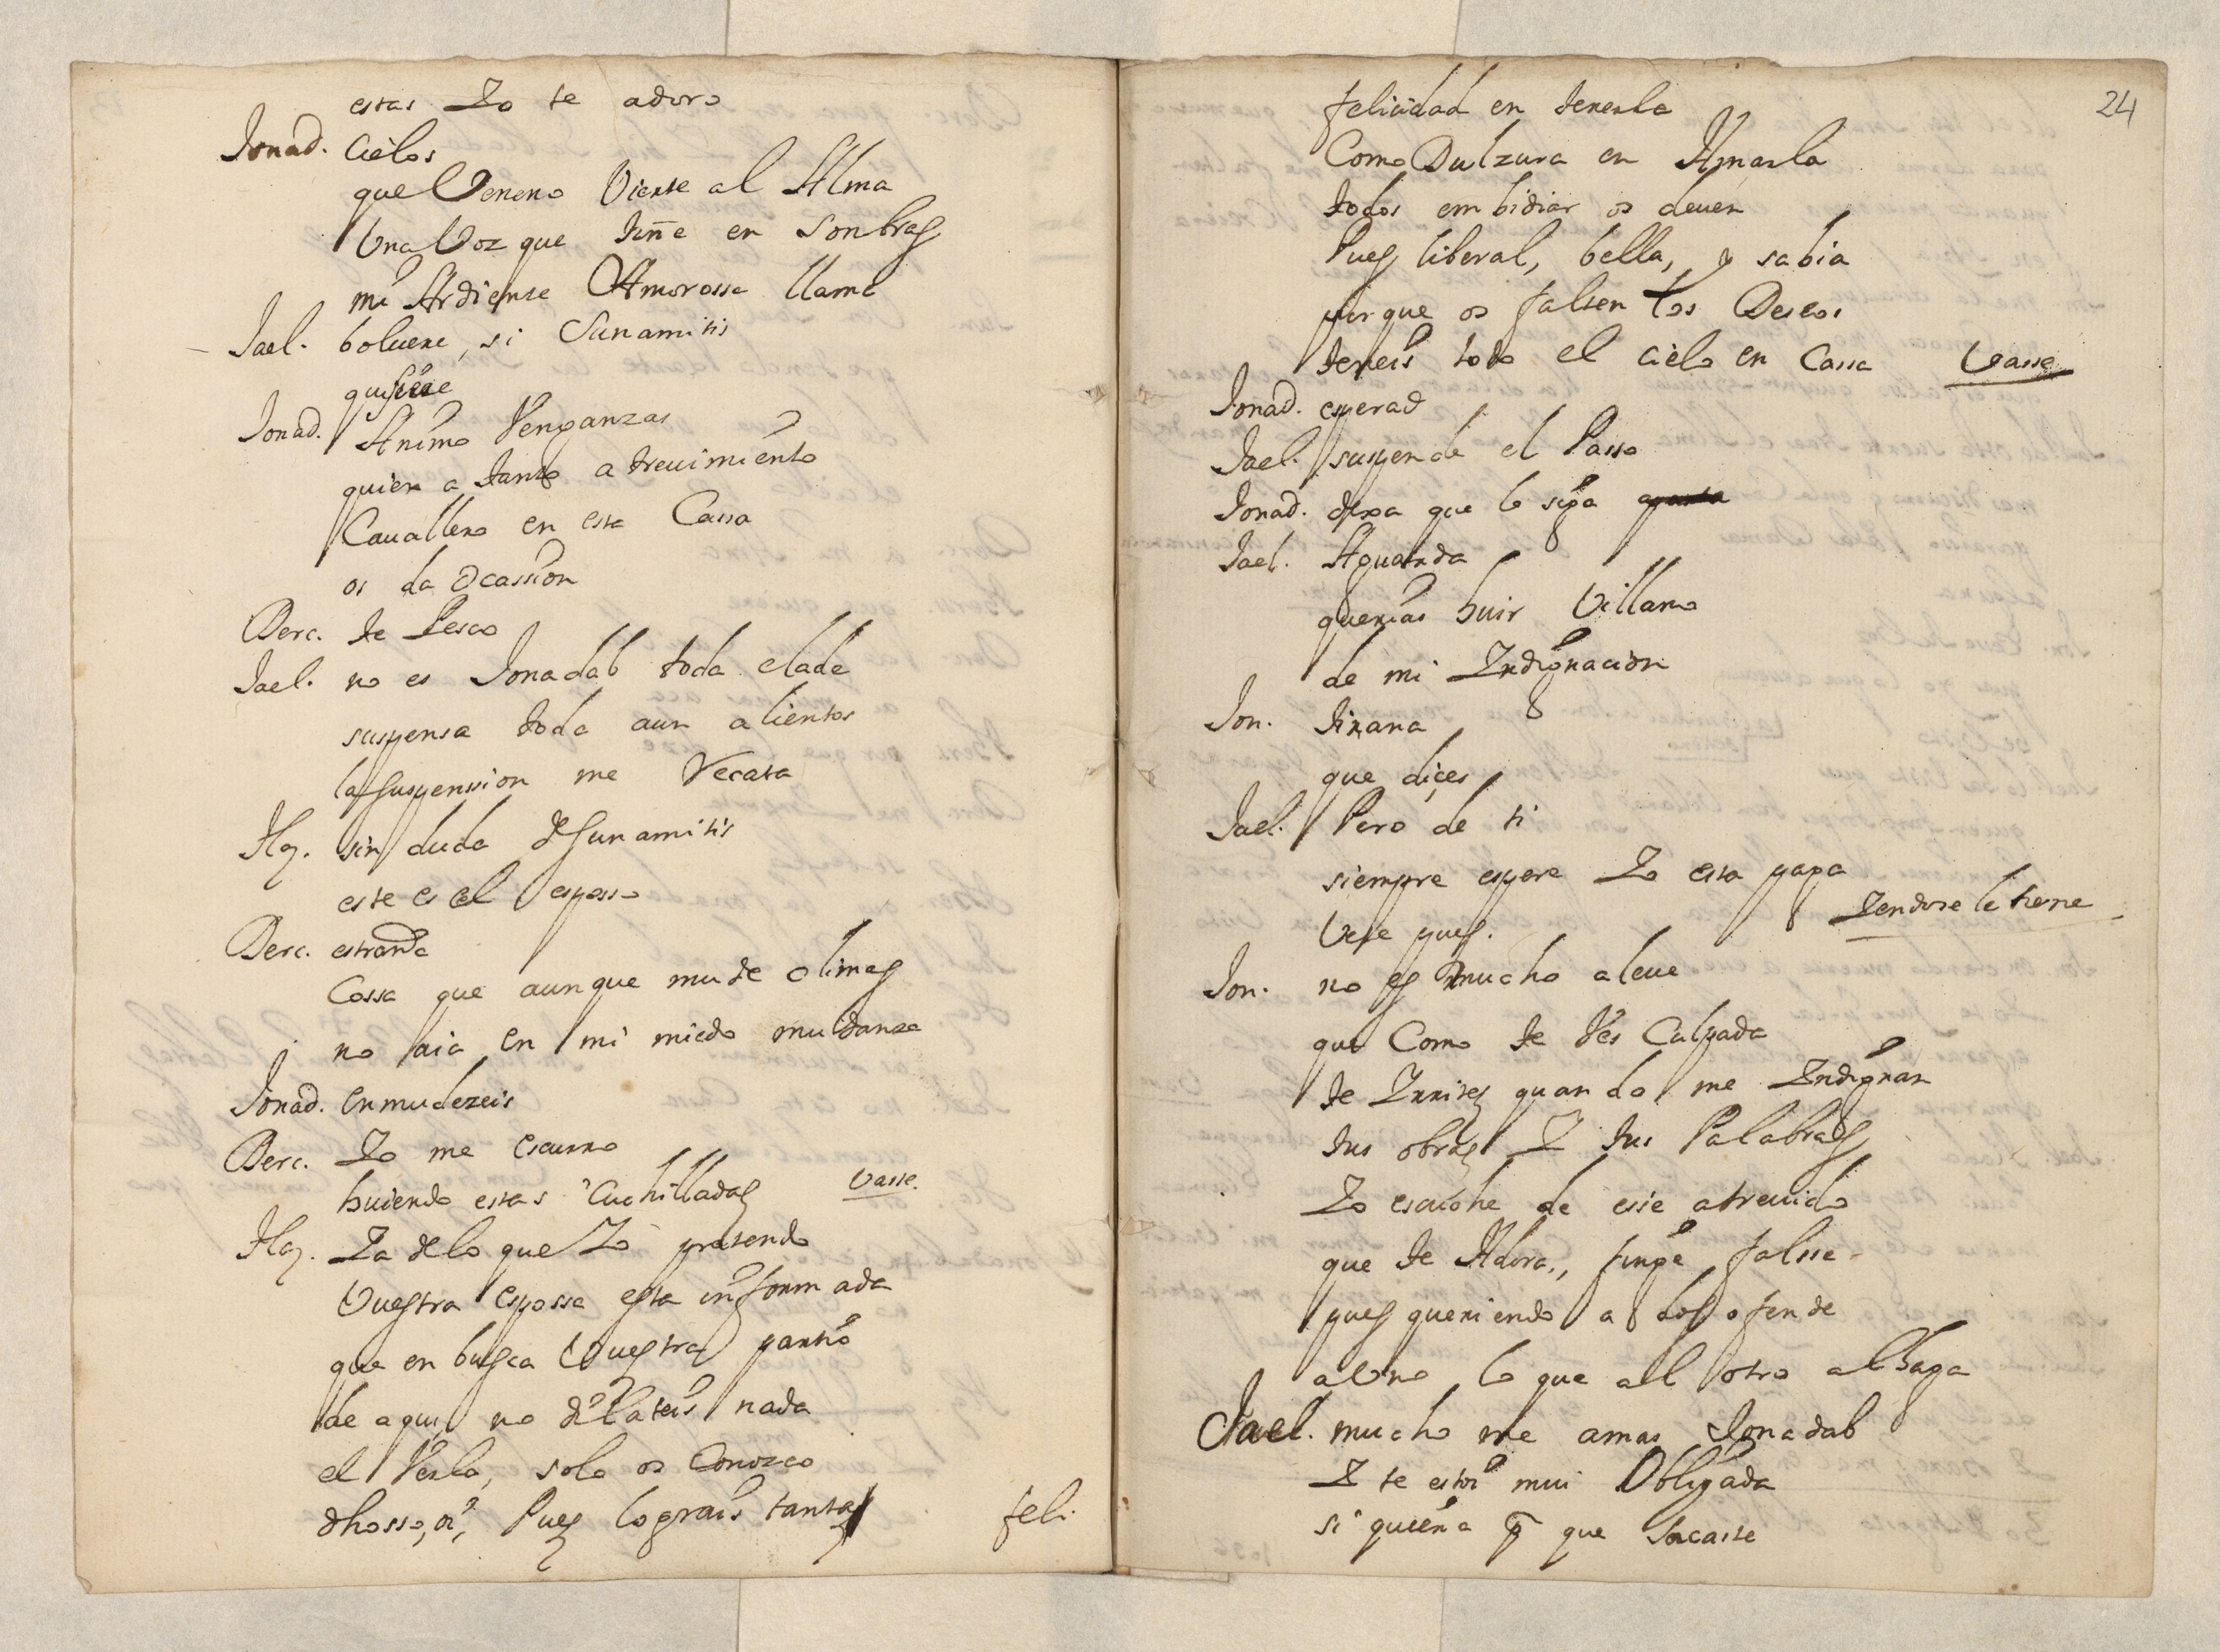 estas Yo te adoro
Jonad. Cielos
que Veneno Vierte al Alma
Una Voz que tiñe en sonbras
mi Ardiente Amorossa llama
Jael. boluere, si Sunamitis
quisiere
Jonad. Animo Venganzas
quien a tanto atreuimiento
Cauallero en esta Cassa
os da Ocassion
Berc. te Pesco
Jael. no es Jonadab toda elada
suspensa toda aun alientos
la suspenssion me Recata
Ag. sin duda de Sunamitis
este es el esposso
Berc. estraña
Cossa que aunque mude climas
no aia en mi miedo mudanza
Jonad. enmudezeis
Berc. Yo me escurro
huiendo estas Cuchilladas Vasse.
Ag. Ya de lo que Yo pretendo
Vuestra espossa esta informada
que en busca Vuestra partió
de aqui, no dilateis nada
el Verla, solo os Conozco
dhosso, oi, Pues lograis tanta
feli
24
felicidad en tenerla
Como Dulzura en Amarla
todos embidiar os deuen
Pues liberal, bella, y sabia
porque os falten los Deseos
teneis todo el cielo en Cassa Vasse
Jonad. esperad
Jael. suspende el Passo
Jonad. dexa que le siga
Jael. Aguarda
querias huir Villano
de mi Indignacion
Jon. tirana
que dices
Jael. Pero de ti
siempre espere Yo esta paga
Vete pues. Yendose le tiene
Jon. no es mucho aleue
que Como te Ves Culpada
te Irrites quando me Indignan
tus obras Y tus Palabras
Yo escuche de esse atreuido
que te Adora, finge falsse
pues queriendo a dos ofende
al Uno lo que al otro alhaga
Jael. mucho me amas Jonadab
Y te estoi mui Obligada
si quiera p que sacaste